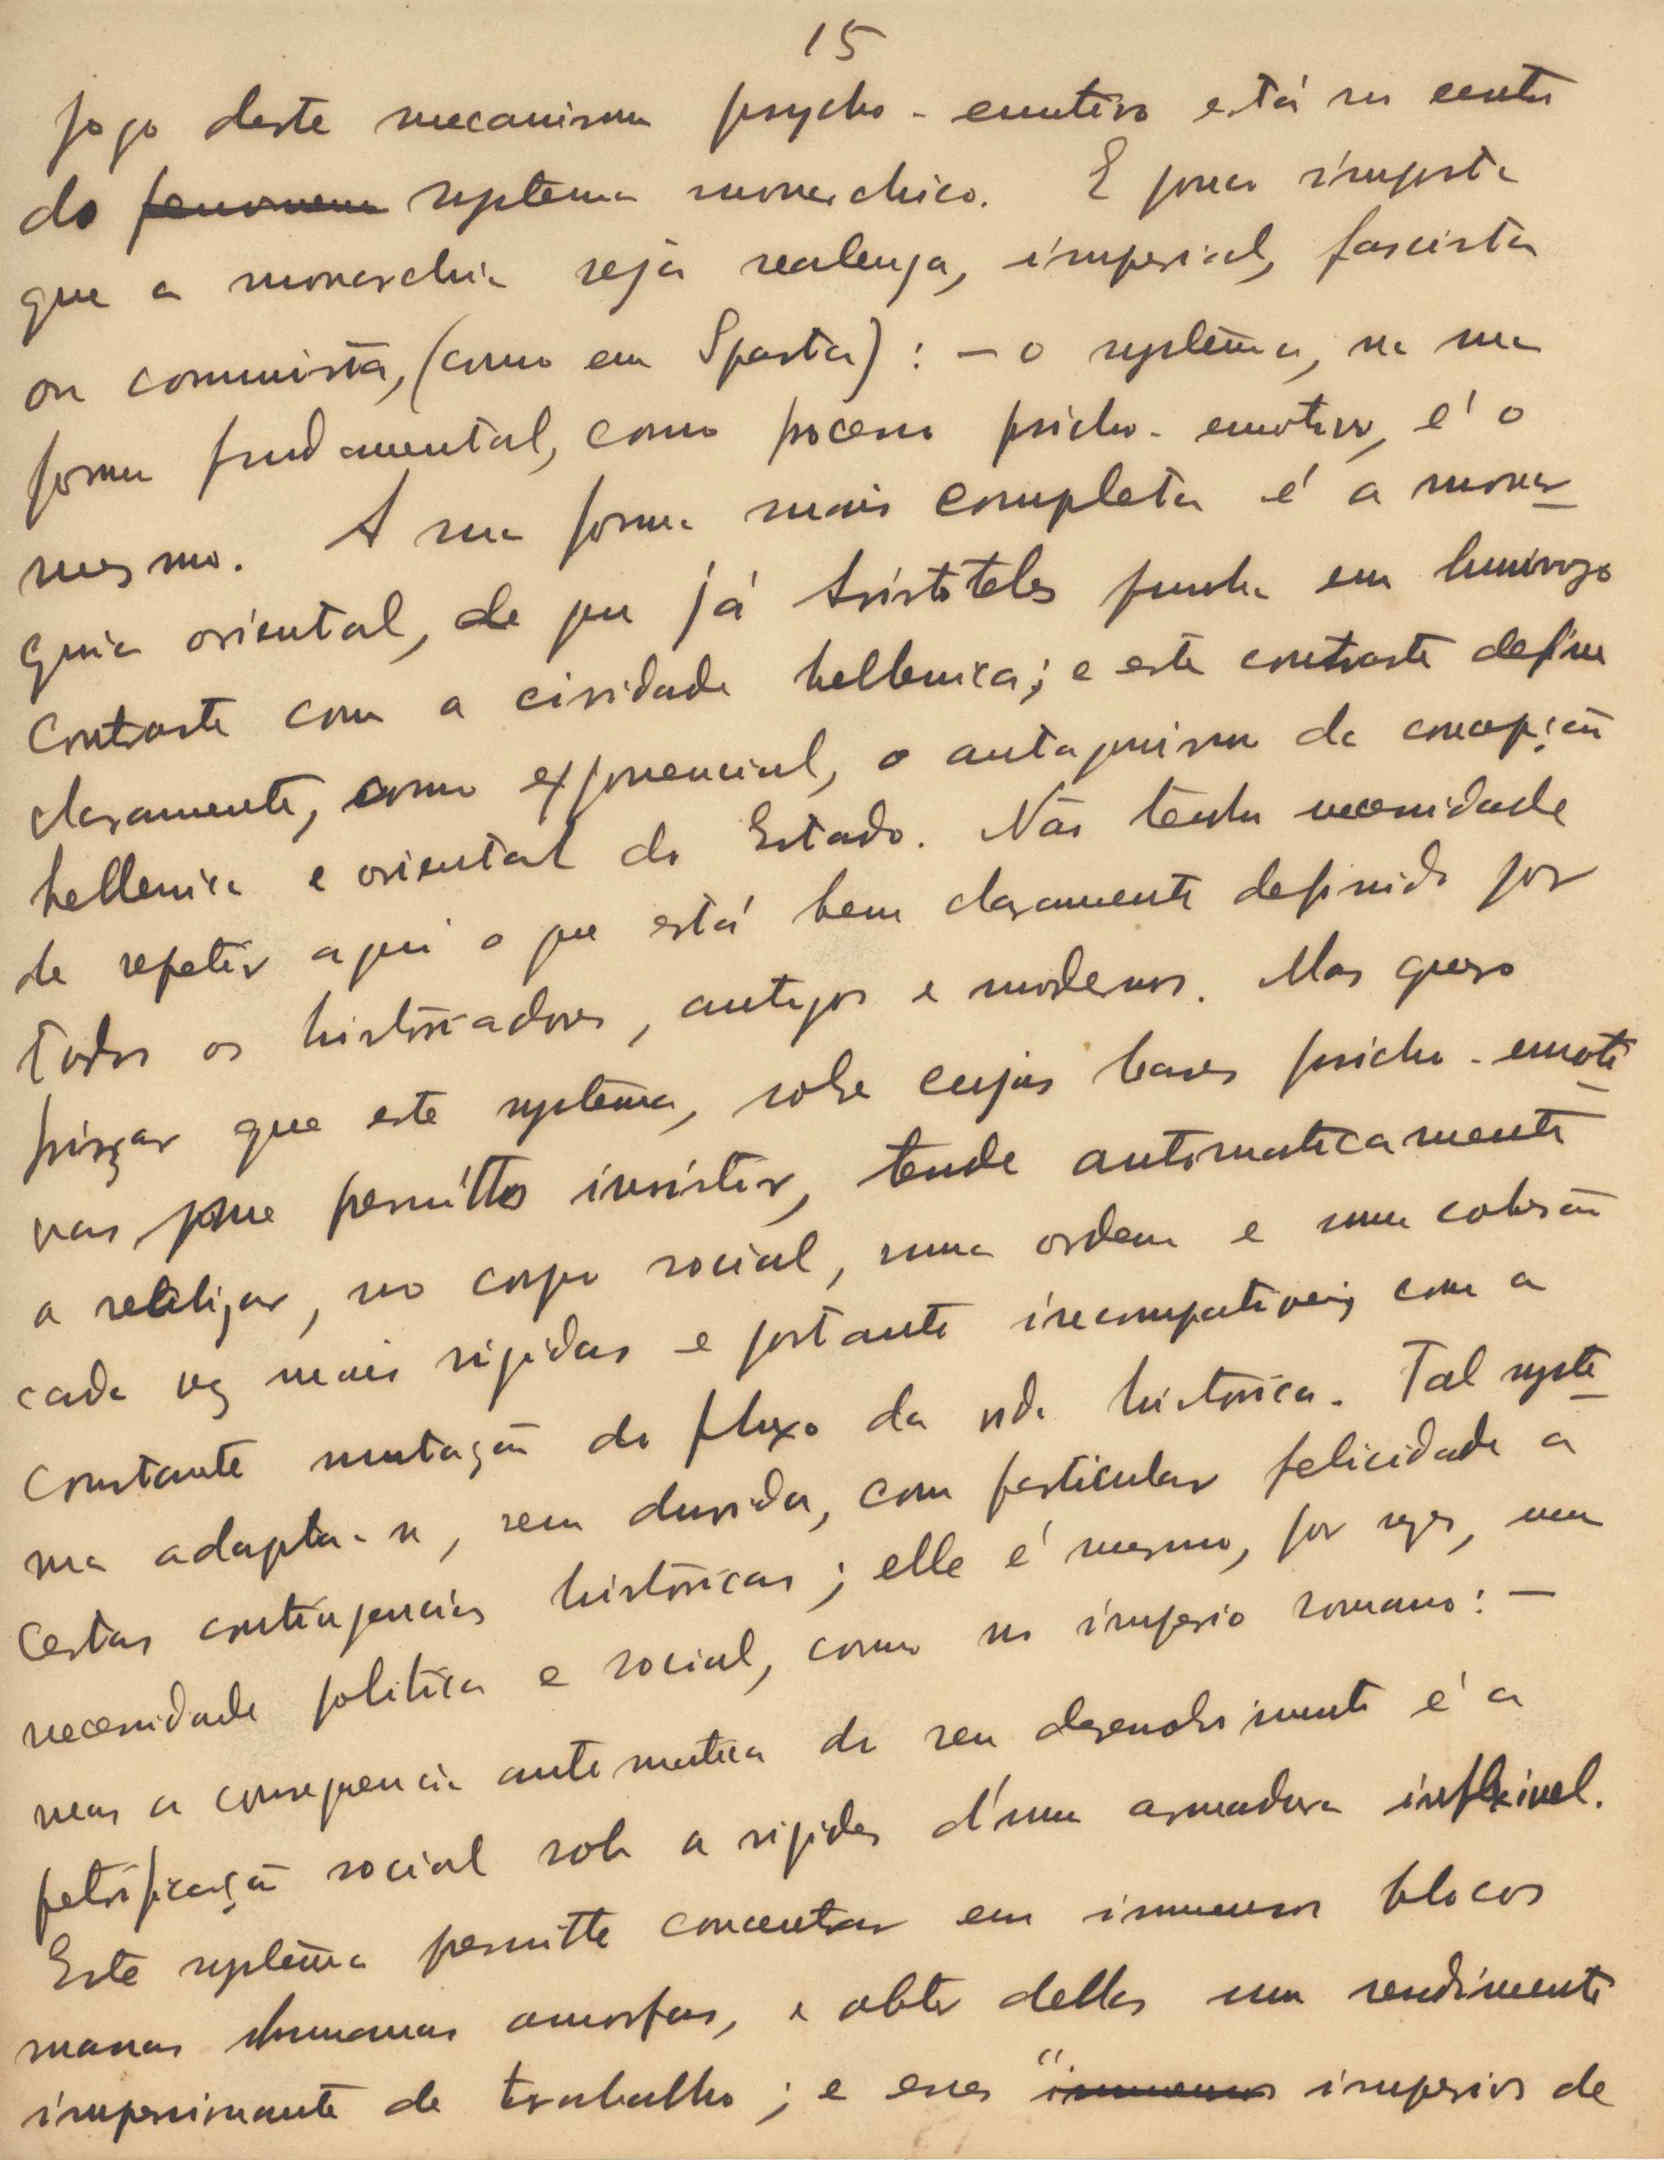 15
jogo deste mecanismo psycho-emotivo está no centro
do fenomeno systema monarchico. E pouco importa
que a monarchia seja realenga, imperial, fascista
ou communista, (como em Sparta): – o systema, na sua
forma fundamental, como processo psicho-emotivo, é o
mesmo. A sua forma mais completa é a monar-
quia oriental, de que já Aristoteles punha em luminoso
contraste com a cividade hellenica; e este contraste define
claramente, como exponencial, o antagonismo da concepção
hellenica e oriental do Estado. Não tenho necessidade
de repetir aqui o que está bem claramente definido por
todos os historiadores, antigos e modernos. Mas quero
frizar que este systema, sobre cujas bases psicho-emoti-
vas me permitto insistir, tende automaticamente
a realizar, no corpo social, uma ordem e uma cohesão
cada vez mais rigidas e portanto incompativeis com a
constante mutação do fluxo da vida historica. Tal syste-
ma adapta-se, sem duvida, com particular felicidade a
certas contingencias historicas; elle é mesmo, por vezes, uma
necessidade politica e social, como no imperio romano: –
mas a consequencia automatica do seu desenvolvimento é a
petrificação social sob a rigidez d'uma armadura inflexivel.
Este systema permitte concentrar em immensos blocos
massas humanas amorfas, e obter dellas um rendimento
impressionante de trabalho; e esses "immensos imperios de